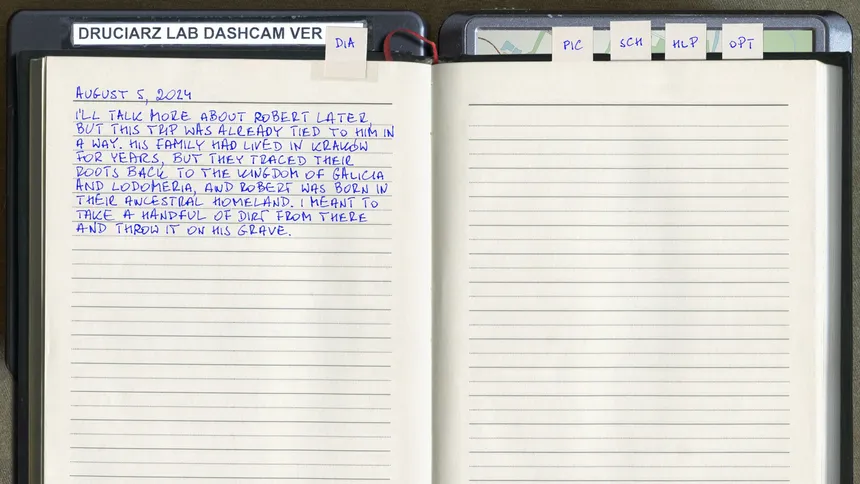 DRUCIARZ LAB DASHCAM VER
DIA
PIC
SCH
HLP
OPT
AUGUST 5, 2024
I'LL TALK MORE ABOUT ROBERT LATER,
BUT THIS TRIP WAS ALREADY TIED TO HIM IN
A WAY. HIS FAMILY HAD LIVED IN KRAKÓW
FOR YEARS, BUT THEY TRACED THEIR
ROOTS BACK TO THE KINGDOM OF GALICIA
AND LODOMERIA, AND ROBERT WAS BORN IN
THEIR ANCESTRAL HOMELAND. I MEANT TO
TAKE A HANDFUL OF DIRT FROM THERE
AND THROW IT ON HIS GRAVE.